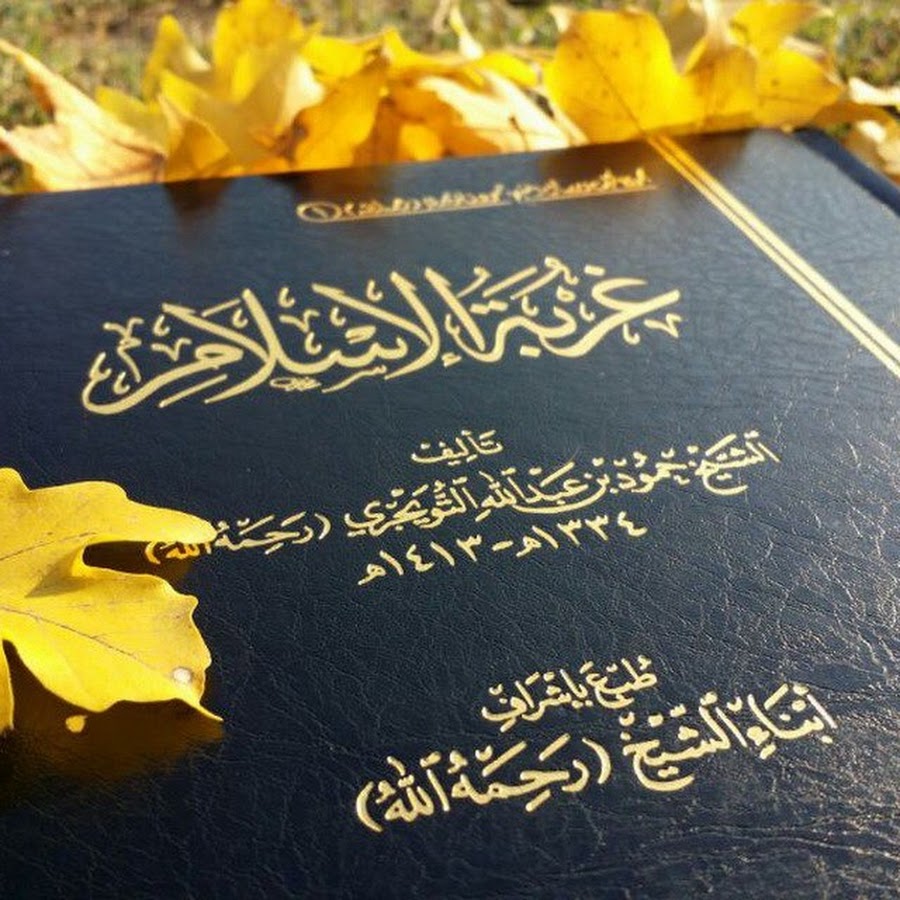 غُرْبَةُ الإِسْلَامِ
تَأْلِيف
الشَّيْخ حمُود بْن عَبْد اللهِ التُّوَيْجِري (رَحِمَهُ اللهُ)
١٣٣٤هـ - ١٤١٣هـ
طُبِعَ بِإِشْرَافِ
أَبْنَاءِ الشَّيْخ (رَحِمَهُ اللهُ)